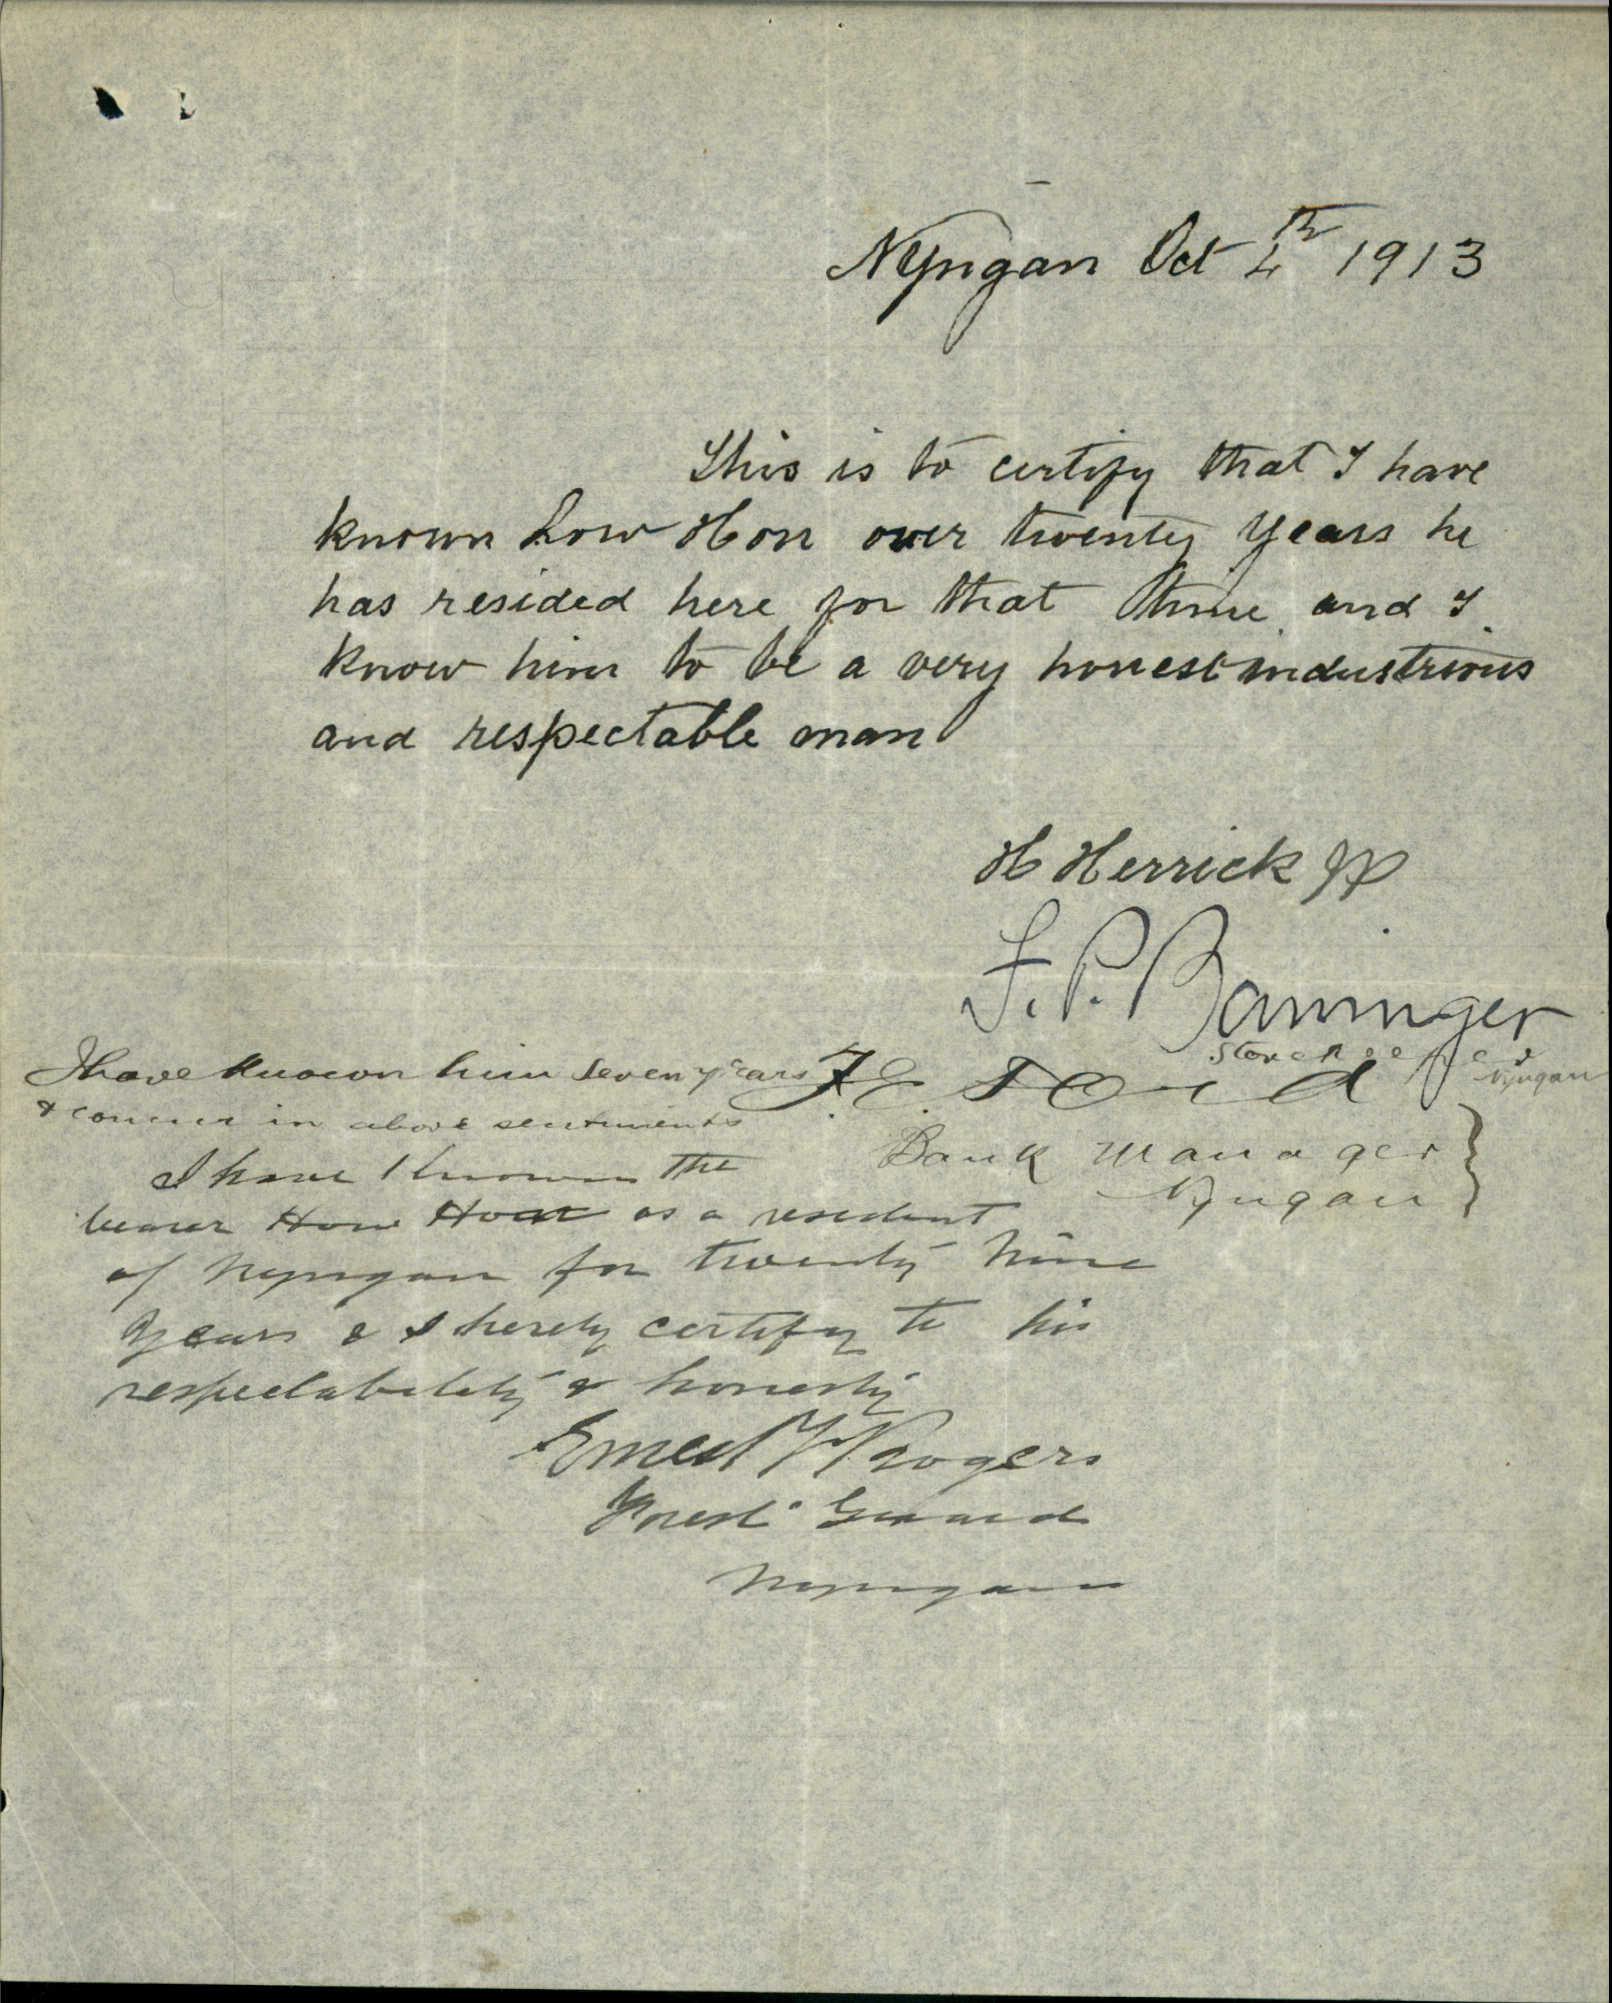 Nyngan Oct 4th 1913
This is to certify that I have
known Low Hon over twenty years he
has resided here for that time and I
know him to be a very honest industrious
and respectable man
H Herrick JP
F. P. Banninger
Storekeeper
Nyngan
I have known him seven years
& concur in above sentiments
F. E.
Bank Manager
Nyngan
I have known the
bearer How Hon as a resident
of Nyngan for twenty nine
years & I hereby certify to his
respectability & honesty
Ernest Rogers
Forest Guard
Nyngan